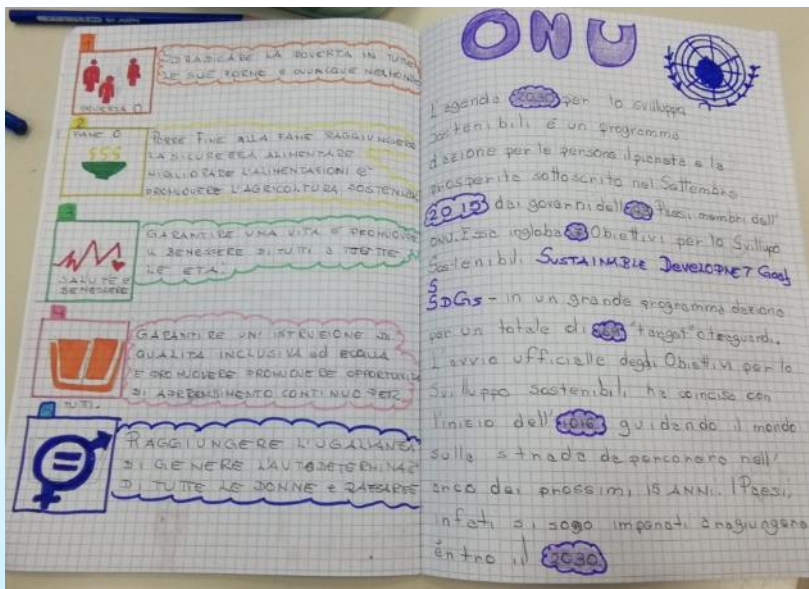 1
SDRADICARE LA POVERTA IN TUTTE
LE SUE FORNE E OVUNQUE NEL MONDO
POVERTA 0
2
FAME 0
PORRE FINE ALLA FAME RAGGIUNGERE
LA SICUREZZA ALIMENTARE
MIGLIORARE L'ALIMENTAZIONI e
PROMUOVERE L'AGRICOLTURA SOSTENIBILE
3
GARANTIRE UNA VITA E PROMUOVERE
IL BENESSERE DI TUTTI A TUTTE
LE ETA.
SALUTE e
BENESSERE
4
GARANTIRE UN'ISTRUZIONE DI
QUALITA INCLUSIVA ed EQUA
E PROMUOVERE PROMUOVERE OPPORTUNITA
DI APPRENDIMENTO CONTINUO PER
TUTTI.
5
RAGGIUNGERE L'UGALIANZA
DI GENERE L'AUTODETERMINAZ
DI TUTTE LE DONNE e RAGAZZE
ONU
L'agenda 2030 per lo sviluppo
sostenibili é un programma
dazione per le persone il pianeta e la
prosperita sottoscritto nel Settembre
2015 dai governi dell 193 Paesi membri dell'
ONU. Esso ingloba 17 Obiettivi per lo Svilupo
Sostenibili SUSTAINABLE DEVELOPNET Goal
S
SDGs - in un grande programma dazione
per un totale di 169 "target" o traguardi.
L'avvio ufficialle degli Obiettivi per lo
Svilluppo sostenibili ha coinciso con
l'inizio dell' 2016 guidando il mondo
sulla strada da percorrere nell'
arco dei prossimi 15 ANNI. I Paesi,
infati si sono impenati a ragiungere
entro il 2030